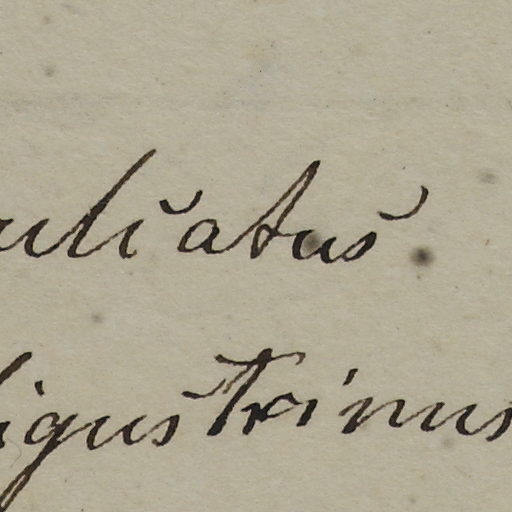 uliatus
ligustrinus